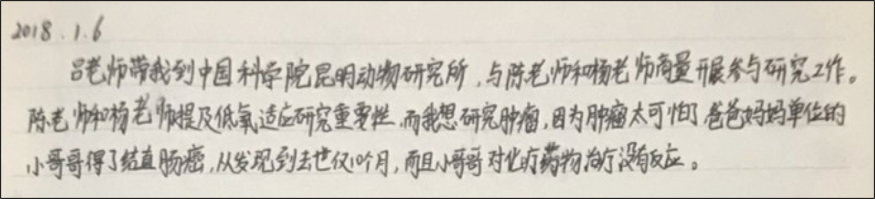 2018.1.6
吕老师带我到中国科学院昆明动物研究所,与陈老师和杨老师商量开展参与研究工作。
陈老师和杨老师提及低氧适应研究重要性,而我想研究肿瘤,因为肿瘤太可怕了爸爸妈妈单位的
小哥哥得了结直肠癌,从发现到去世仅10个月,而且小哥哥对化疗药物治疗没有反应。